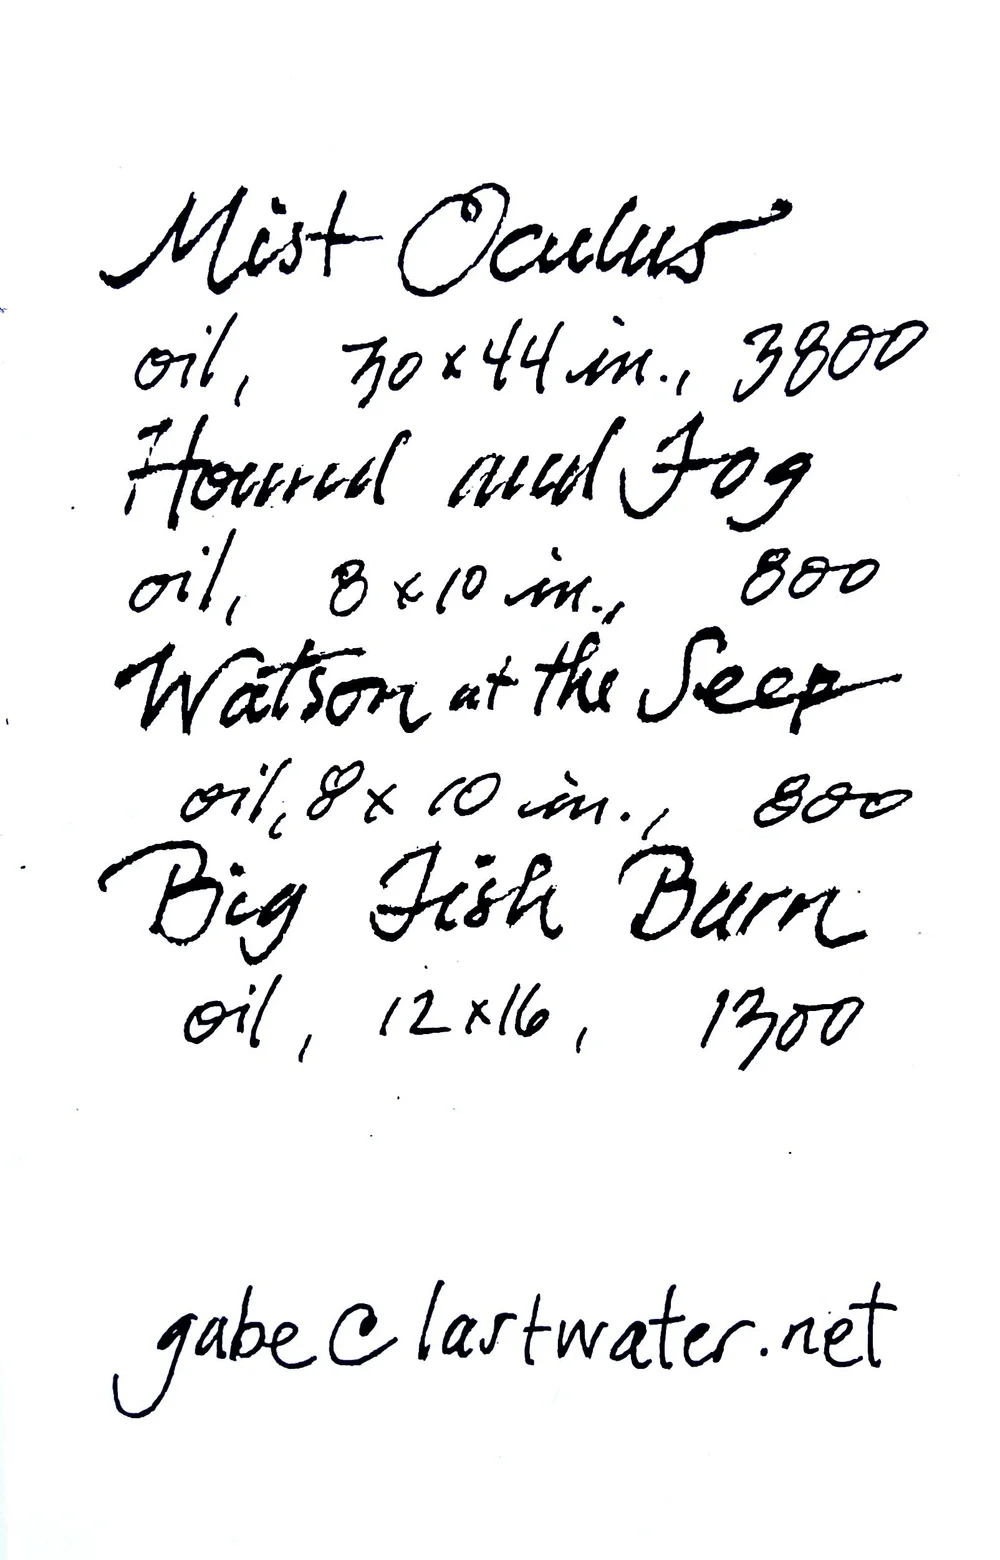 Mist Oculus
oil, 30 x 44 in., 3800
Hound and Fog
oil, 8 x 10 in., 800
Watson at the Seep
oil, 8 x 10 in., 800
Big Fish Burn
oil, 12 x 16, 1300
gabe@lastwater.net